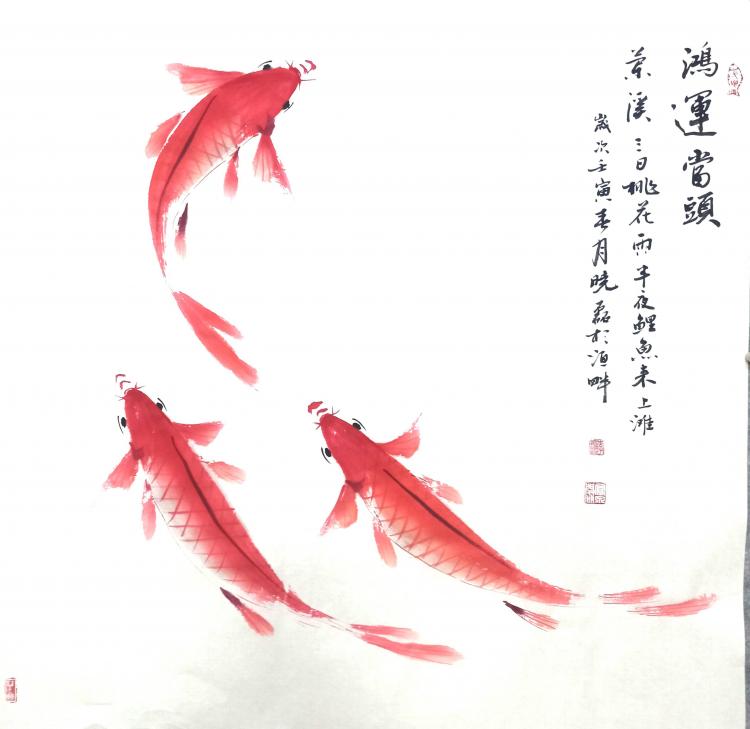 鴻運當頭
蘭溪三日桃花雨半夜鯉魚來上灘
歲次壬寅春月曉磊於洹畔